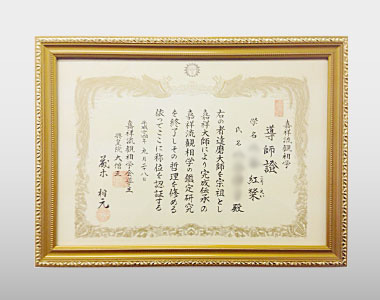 嘉祥流観相学
導師證
学名 紅榮
氏名 殿
右の者達磨大師を宗祖とし
嘉祥大師により完成伝承の
嘉祥流観相学の鑑定研究
を終了しその哲理を修める
依ってここに称位を認証する
平成二十四年 九月二十八日
嘉祥流観相学会
大僧正